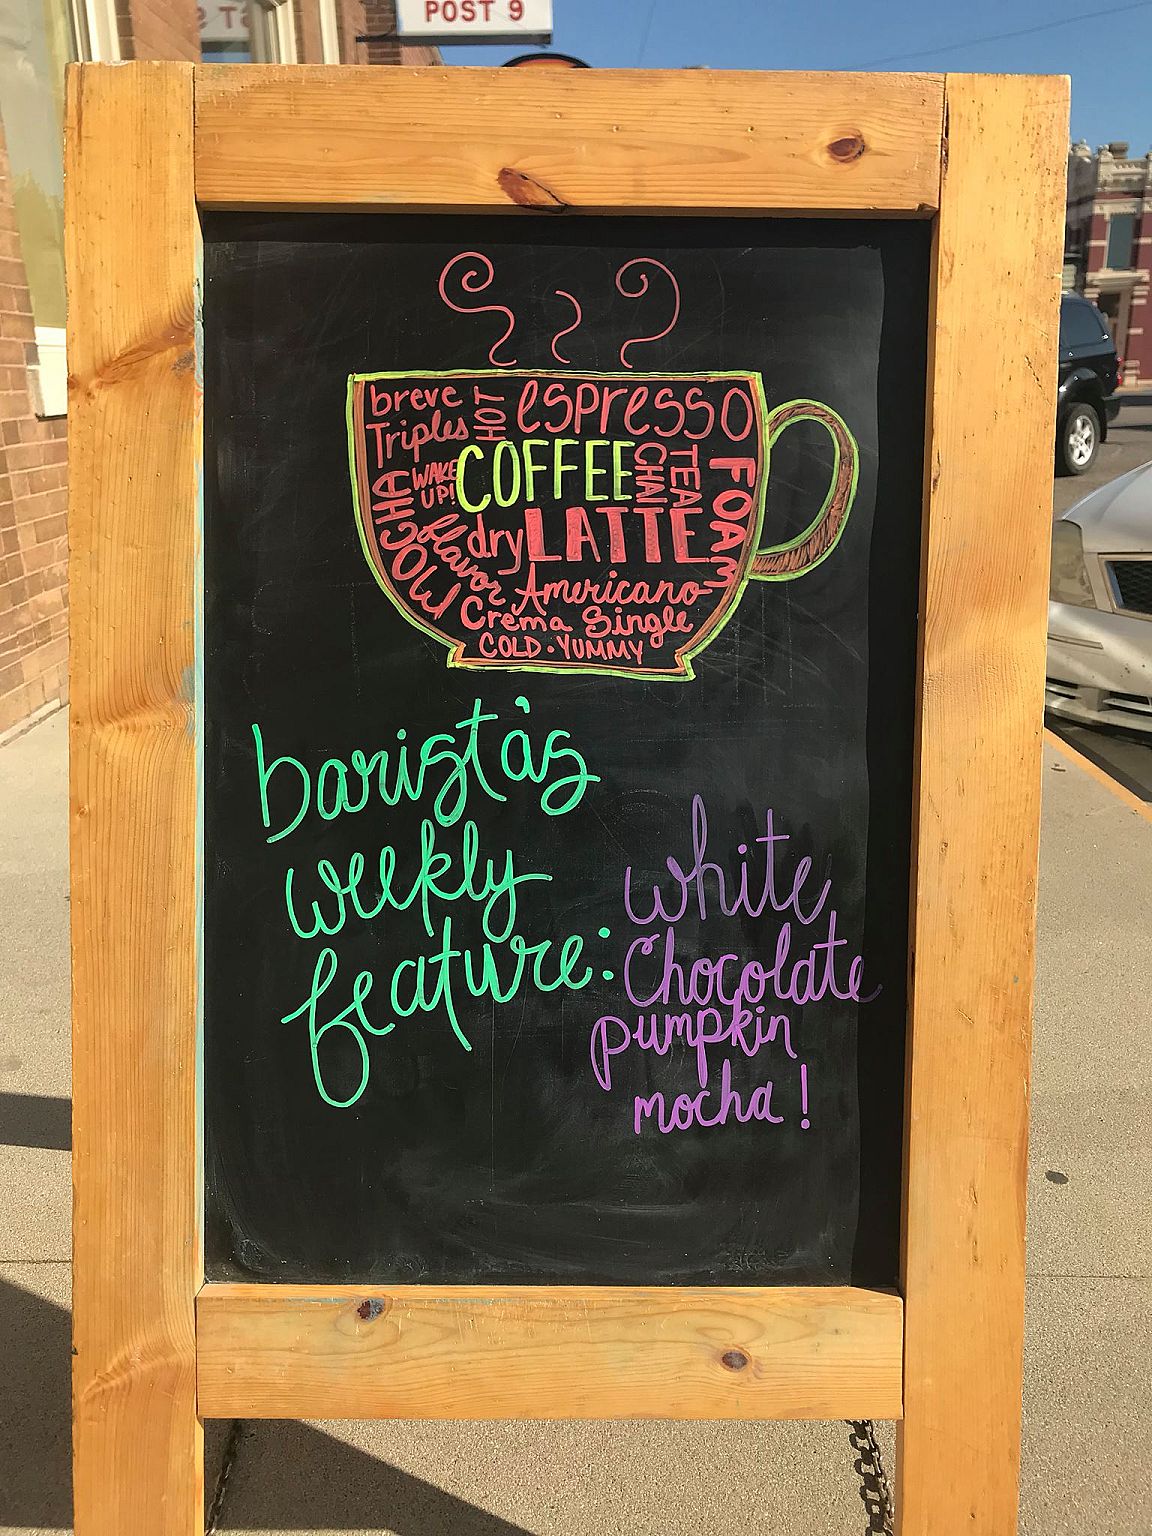 POST 9
breve HOT espresso
Triples
WAKE UP! COFFEE CHAI TEA FOAM
MOCHA
flavor dry LATTE
Americano
Crema Single
COLD · YUMMY
barista's
weekly
feature:
white
Chocolate
pumpkin
mocha!